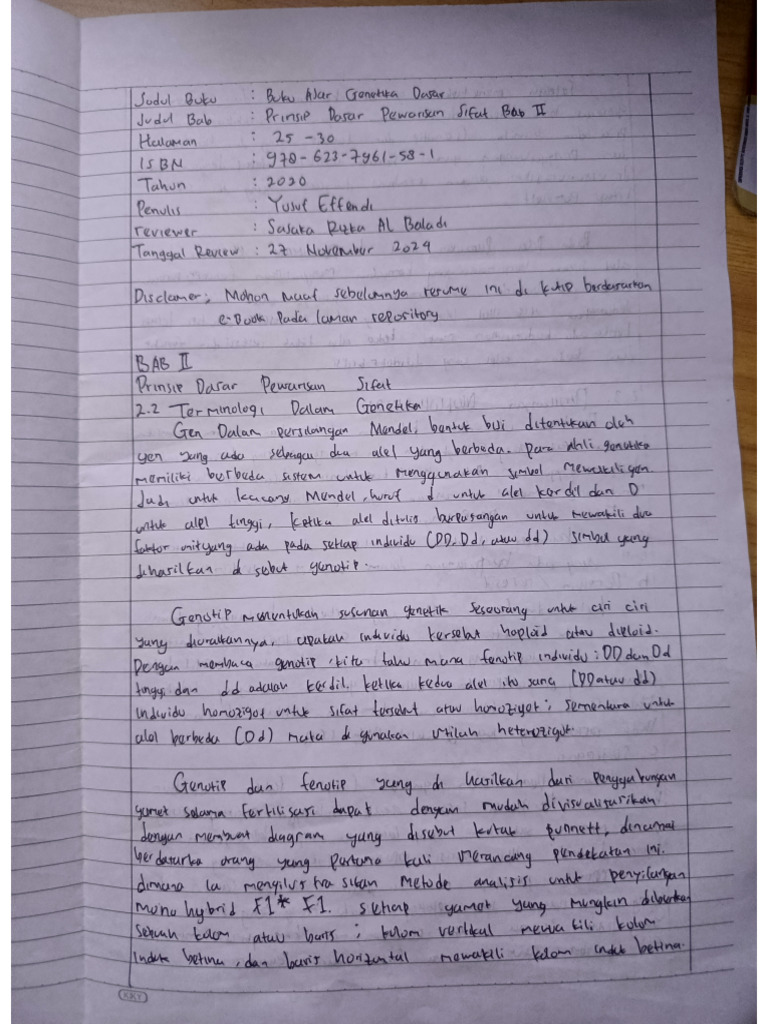 Judul Buku : Buku Ajar Genetika Dasar
Judul Bab : Prinsip Dasar Pewarisan Sifat Bab II
Halaman : 25 - 30
ISBN : 978-623-7961-58-1
Tahun : 2020
Penulis : Yusuf Effendi
reviewer : Sasaka Rizka AL Baladi
Tanggal Review : 27 November 2024
Disclamer; Mohon maaf sebelumnya resume ini di kutip berdasarkan
e-Book pada laman repository
BAB II
Prinsip Dasar Pewarisan Sifat
2.2 Terminologi Dalam Genetika
Gen Dalam persilangan Mendel, bentuk biji ditentukan oleh
gen yang ada sebagai dua alel yang berbeda. Para ahli genetika
memiliki berbeda sistem untuk menggunakan simbol mewakili gen
Jadi untuk kacang Mendel, huruf d untuk alel kerdil dan D
untuk alel tinggi, ketika alel ditulis berpasangan untuk mewakili dua
faktor unit yang ada pada setiap individu (DD, Dd, atau dd) simbul yang
dihasilkan di sebut genotip.
Genotip menentukan susunan genetik seseorang untuk ciri ciri
yang diuraikannya, apakah individu tersebut haploid atau diploid.
Dengan membaca genotip, kita tahu mana fenotip individu : DD dan Dd
tinggi dan dd adalah kerdil. ketika kedua alel itu sama (DD atau dd)
individu homozigot untuk sifat tersebut atau homozigot; sementara untuk
alel berbeda (Dd) maka di gunakan istilah heterozigot.
Genotip dan fenotip yang di hasilkan dari penggabungan
gamet selama fertilisasi dapat dengan mudah divisualisasikan
dengan membuat diagram yang disebut kotak punnett, dinamai
berdasarka orang yang pertama kali merancang pendekatan ini.
dimana Ia mengilustrasikan metode analisis untuk penyilangan
mono hybrid F1* F1. setiap gamet yang mungkin diberikan
sebuah kolom atau baris; kolom vertikal mewakili kolom
induk betina, dan baris horizontal mewakili kolom induk betina.
KKY